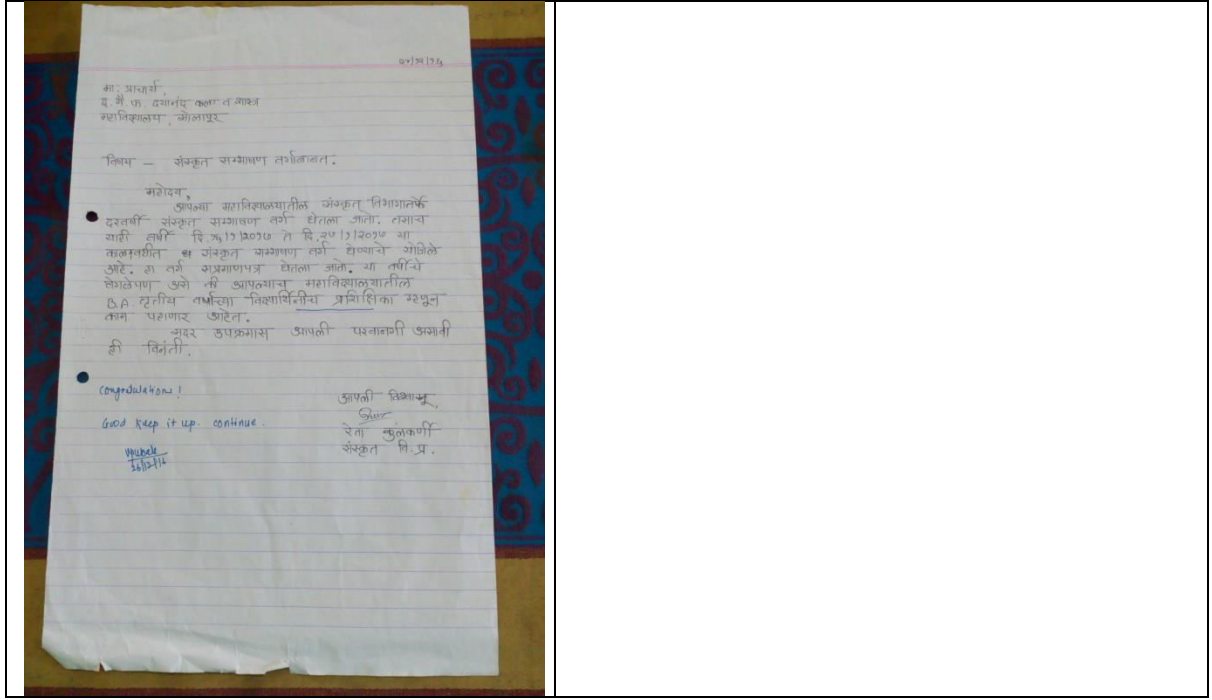 मा. प्राचार्य,
द. भै. फ. दयानंद कला व शास्त्र
महाविद्यालय, सोलापूर
विषय – संस्कृत सम्भाषण वर्गाबाबत.
महोदय,
आपल्या महाविद्यालयातील संस्कृत विभागातर्फे
दरवर्षी संस्कृत सम्भाषण वर्ग घेतला जातो. तसाच
याही वर्षी दि. ते दि. या
कालावधीत संस्कृत सम्भाषण वर्ग घेण्याचे योजिले
आहे. हा वर्ग सप्रमाणपत्र घेतला जातो. या वर्षीचे
वेगळेपण असे की आपल्याच महाविद्यालयातील
B.A. तृतीय वर्षाच्या विद्यार्थिनीच प्रशिक्षिका म्हणून
काम पहाणार आहेत.
सदर उपक्रमास आपली परवानगी असावी
ही विनंती.
Congratulations!
Good keep it up. continue.
26/12/16
आपली विश्वासू,
कुलकर्णी
संस्कृत वि. प्र.